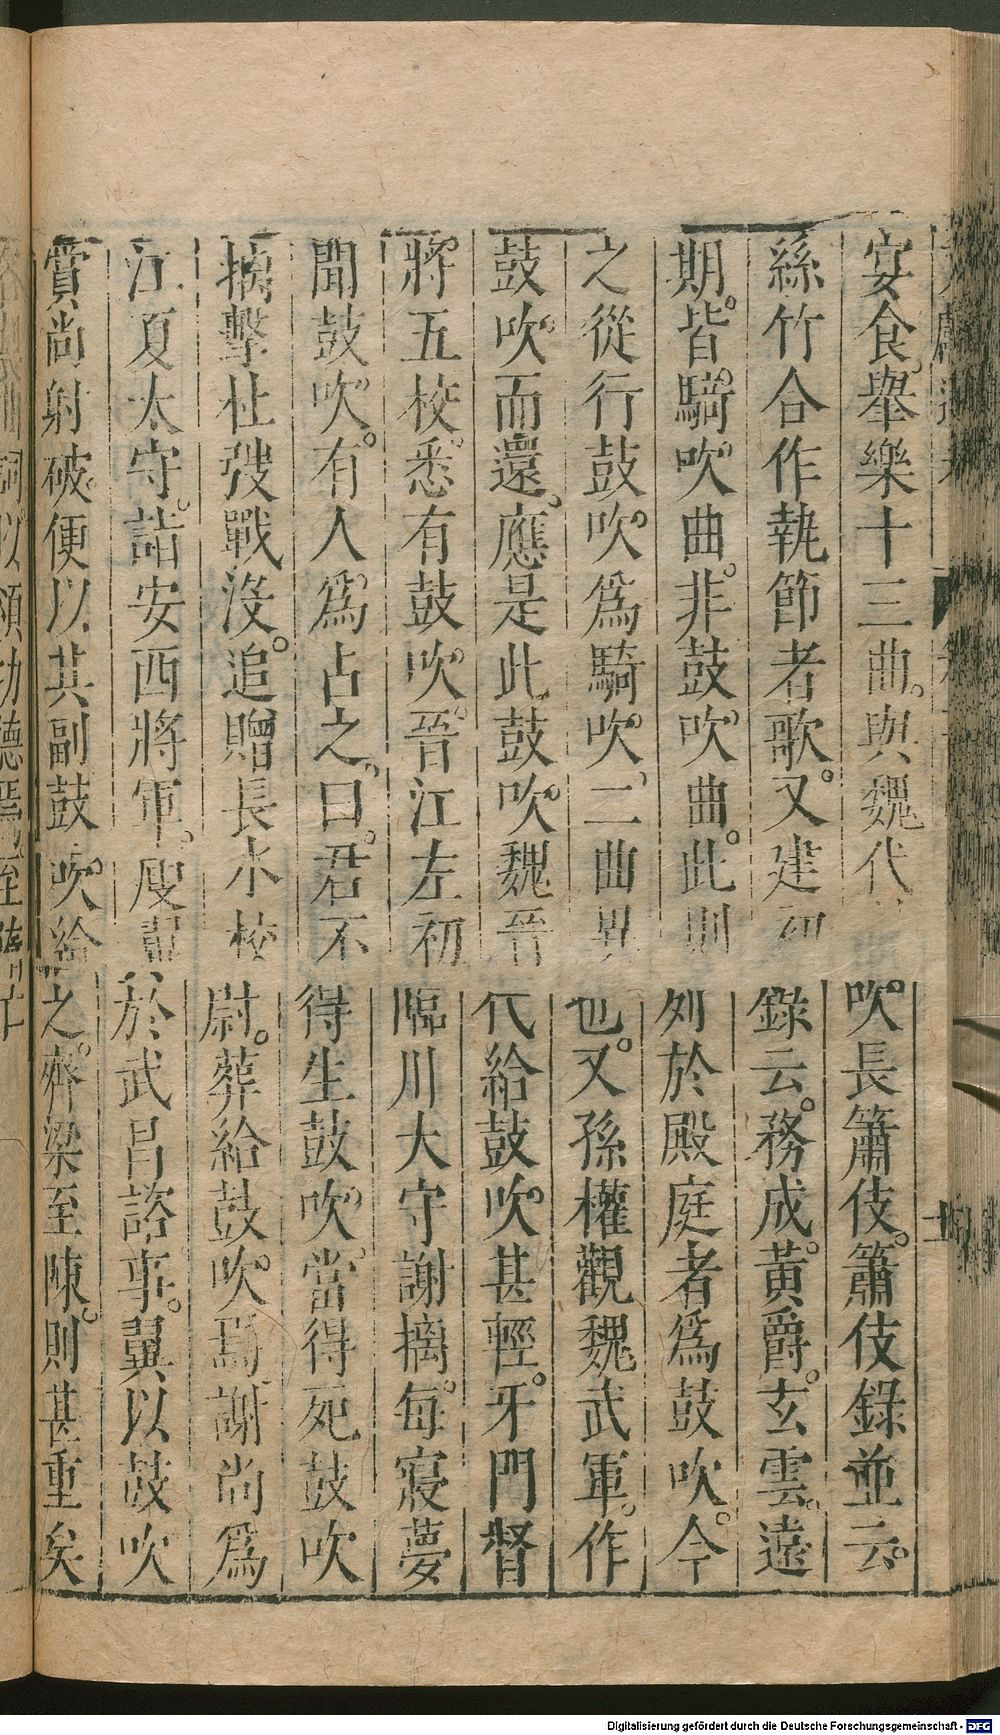 宴食。舉樂十三曲。與魏代鼓吹長簫伎。簫伎錄並云。
絲竹合作執節者歌。又建初錄云。務成。黃爵。玄雲。遠
期。皆騎吹曲。非鼓吹曲。此則列於殿庭者爲鼓吹。今
之從行鼓吹爲騎吹。二曲異也。又孫權觀魏武軍。作
鼓吹而還。應是此鼓吹。魏晉代給鼓吹甚輕。牙門督
將五校。悉有鼓吹。晉江左初臨川大守謝摛。每寢夢
聞鼓吹。有人爲占之。曰。君不得生鼓吹。當得死鼓吹
摛擊杜弢戰沒。追贈長水校尉。葬給鼓吹。焉謝尚爲
江夏太守。詣安西將軍。庾翼於武昌諮事。翼以鼓吹
賞尚射破。便以其副鼓吹給之。齊梁至陳。則甚重矣
Digitalisierung gefördert durch die Deutsche Forschungsgemeinschaft - DFG